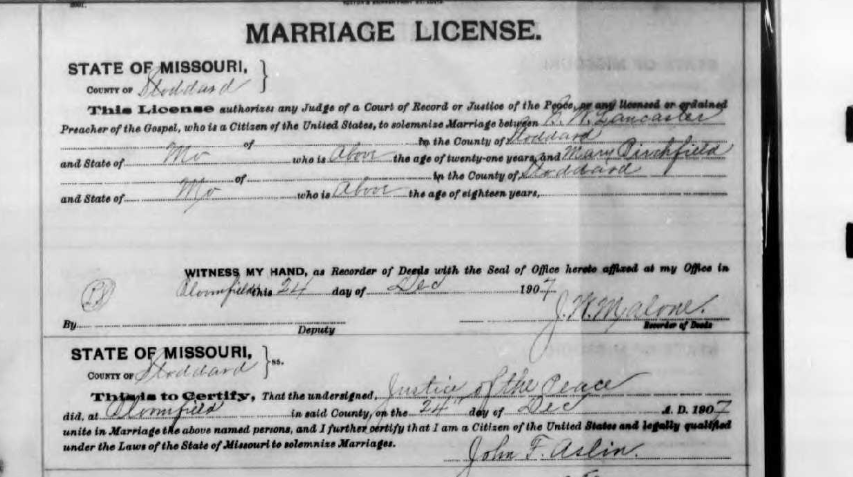 MARRIAGE LICENSE.
STATE OF MISSOURI,
COUNTY OF Stoddard
This License authorizes any Judge of a Court of Record or Justice of the Peace, or any licensed or ordained
Preacher of the Gospel, who is a Citizen of the United States, to solemnize Marriage between Lancaster
of in the County of Stoddard
and State of Mo who is Above the age of twenty-one years, and Mary Birchfield
of in the County of Stoddard
and State of Mo who is Above the age of eighteen years,
WITNESS MY HAND, as Recorder of Deeds with the Seal of Office hereto affixed at my Office in
Bloomfield this 24 day of Dec 1907
J. W. Malone.
By Deputy Recorder of Deeds
STATE OF MISSOURI,
COUNTY OF Stoddard ss.
This is to Certify, That the undersigned, Justice of the Peace
did, at Bloomfield in said County, on the 24" day of Dec A. D. 1907
unite in Marriage the above named persons, and I further certify that I am a Citizen of the United States and legally qualified
under the Laws of the State of Missouri to solemnize Marriages.
John F. Aslin.